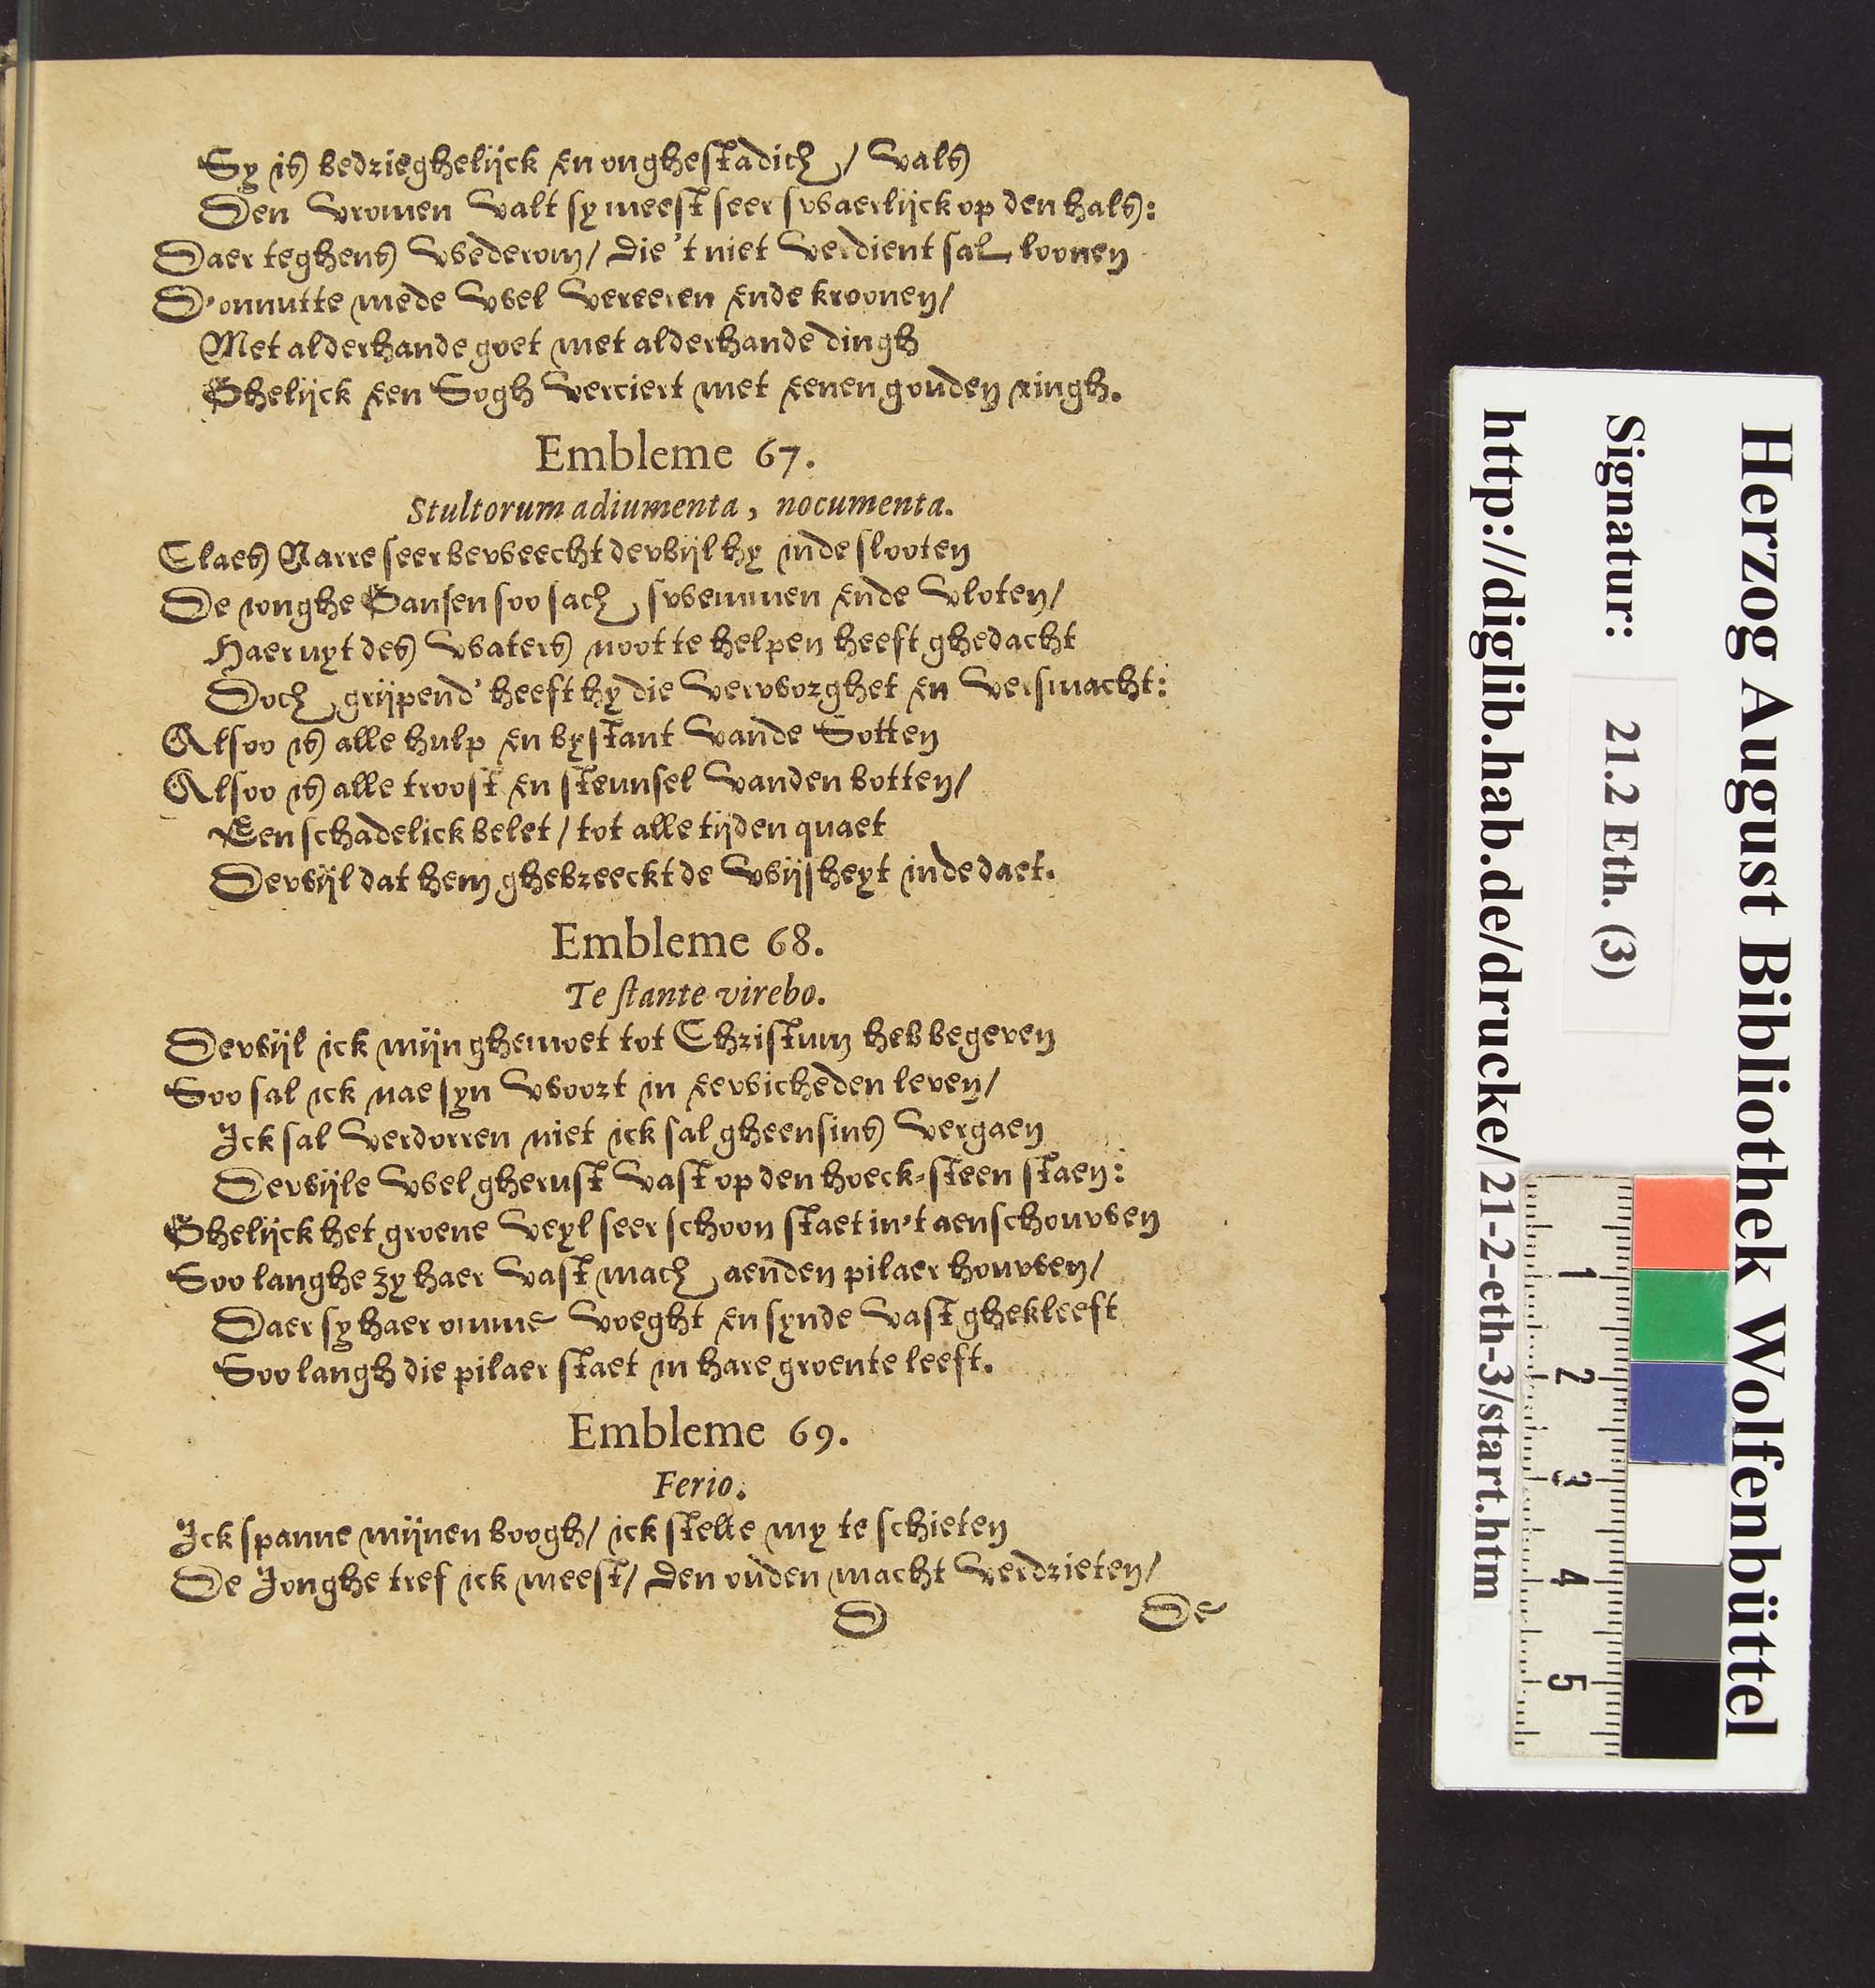 Sy is bedrieghelijck en onghestadich / vals
Den vromen valt sy meest seer swaerlijck op den hals:
Daer teghens wederom / die 't niet verdient sal loonen
D'onnutte mede wel vereeren ende kroonen /
Met alderhande goet met alderhande dingh
Ghelijck een Sogh verciert met eenen gouden ringh.
Embleme 67.
Stultorum adiumenta, nocumenta.
Claes Narre seer beweecht dewijl hy inde slooten
De ionghe Gansen soo sach swemmen ende vloten /
Haer uyt des waters noot te helpen heeft ghedacht
Doch grijpend' heeft hy die verworghet en versmacht:
Alsoo is alle hulp en bystant vande Sotten
Alsoo is alle troost en steunsel vanden botten /
Een schadelick belet / tot alle tijden quaet
Dewijl dat hem ghebreeckt de wijsheyt inde daet.
Embleme 68.
Te stante virebo.
Dewijl ick mijn ghemoet tot Christum heb begeven
Soo sal ick nae syn woort in eewicheden leven /
Ick sal verdorren niet ick sal gheensins vergaen
Dewijle wel gherust vast op den hoeck-steen staen:
Ghelijck het groene veyl seer schoon staet in't aenschouwen
Soo langhe zy haer vast mach aenden pilaer houwen /
Daer sy haer omme voeght en synde vast ghekleeft
Soo langh die pilaer staet in hare groente leeft.
Embleme 69.
Ferio.
Ick spanne mijnen boogh / ick stelle my te schieten
De Ionghe tref ick meest / den ouden macht verdrieten /
D De
Herzog August Bibliothek Wolfenbüttel
Signatur: 21.2 Eth. (3)
http://diglib.hab.de/drucke/21-2-eth-3/start.htm
1 2 3 4 5